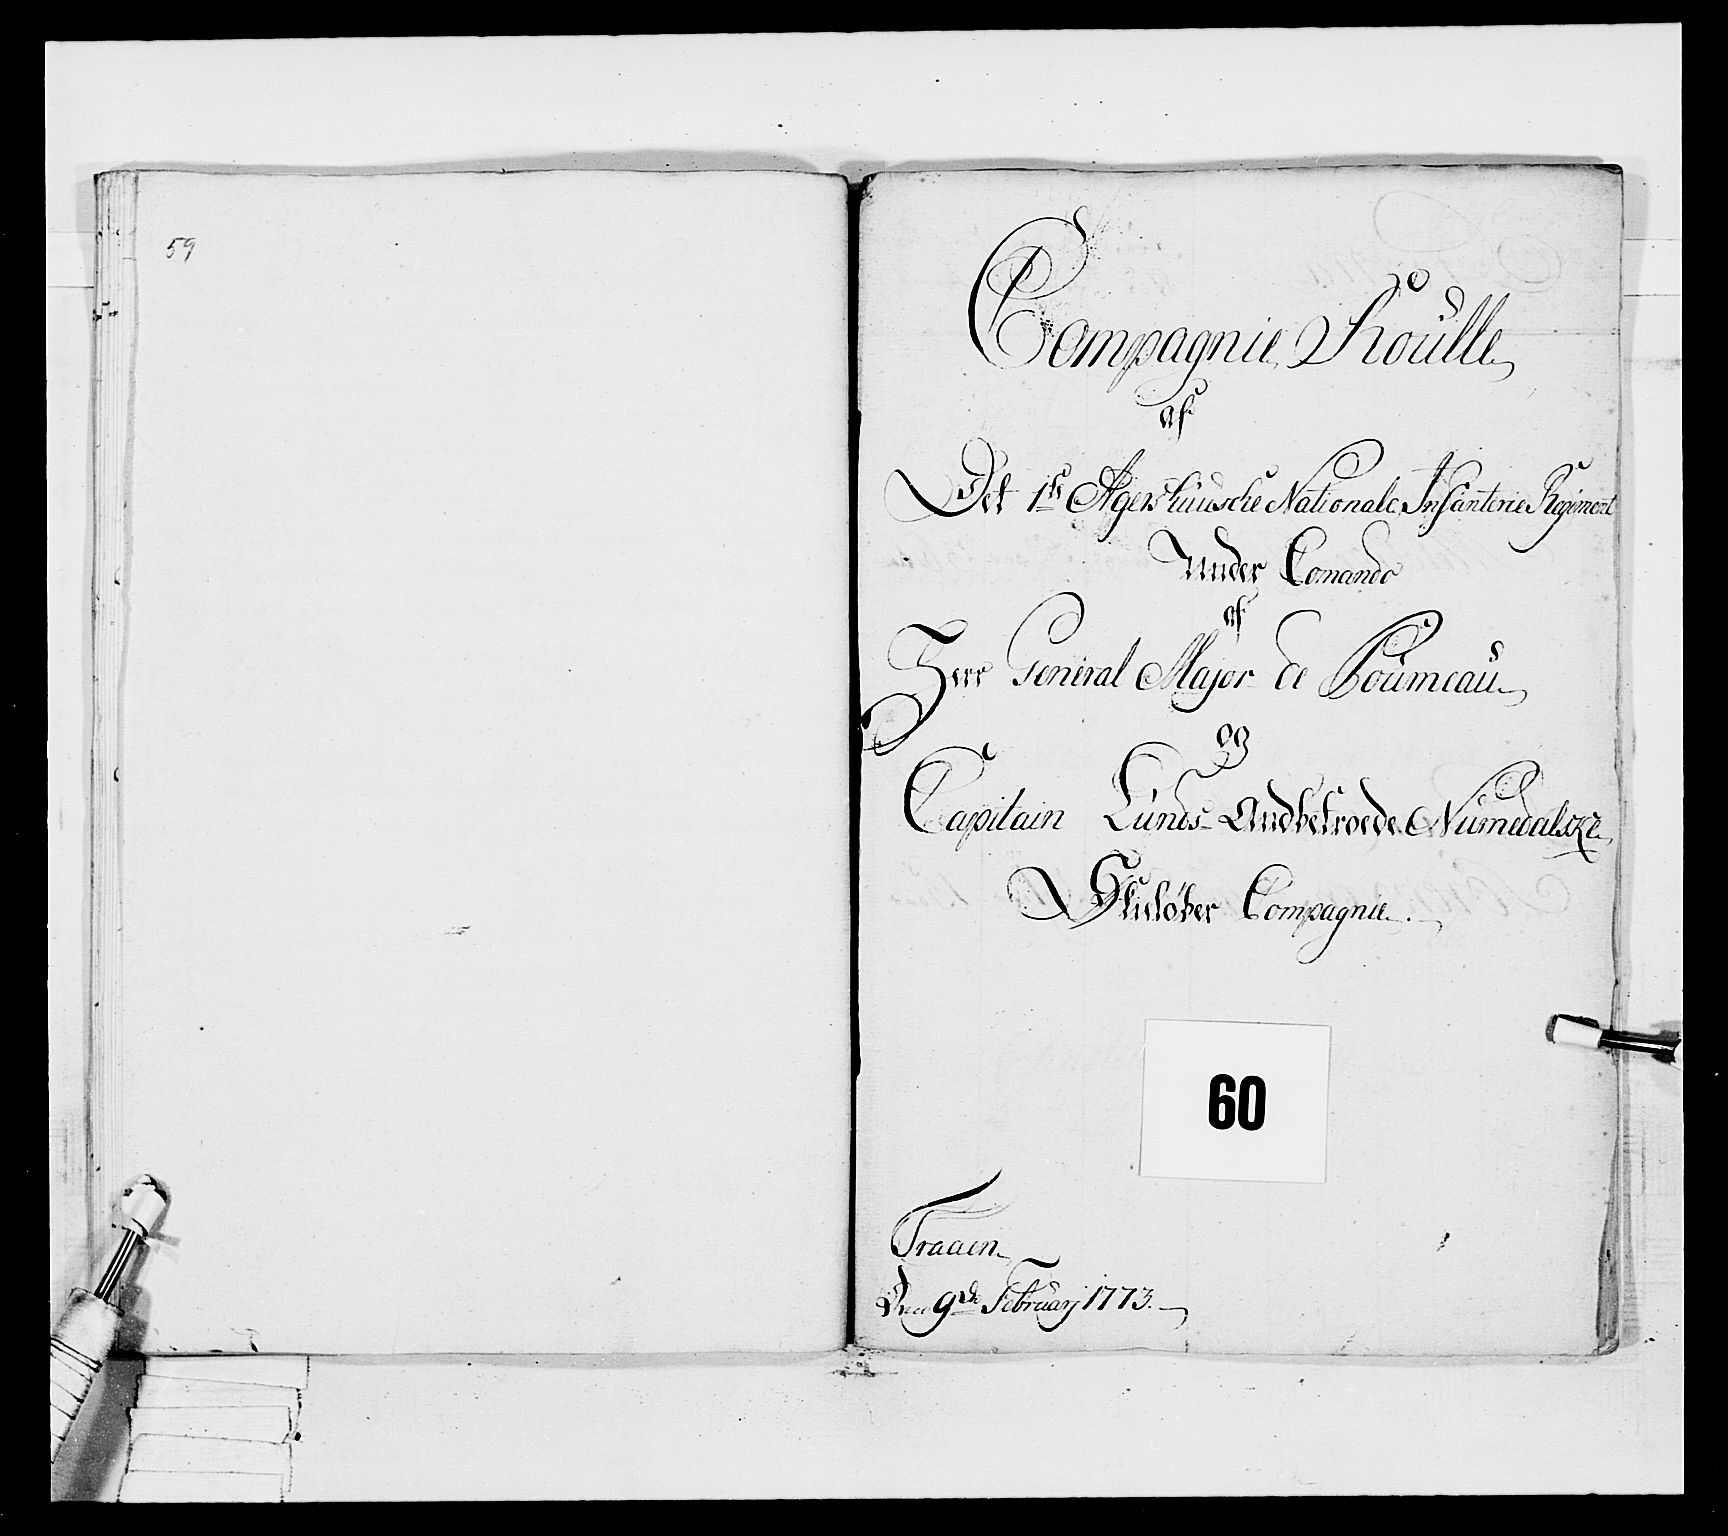 59
Compagnie Roulle
af
Det 1ste Agershuusche Nationale Infanterie Regiment
Under Comando
af
Herr General Major de Poumeau
og
Capitain Lunds Andbetroede Numedalske
Skieløber Compagnie.
60
Traaen
Den 9de Februarj 1773.